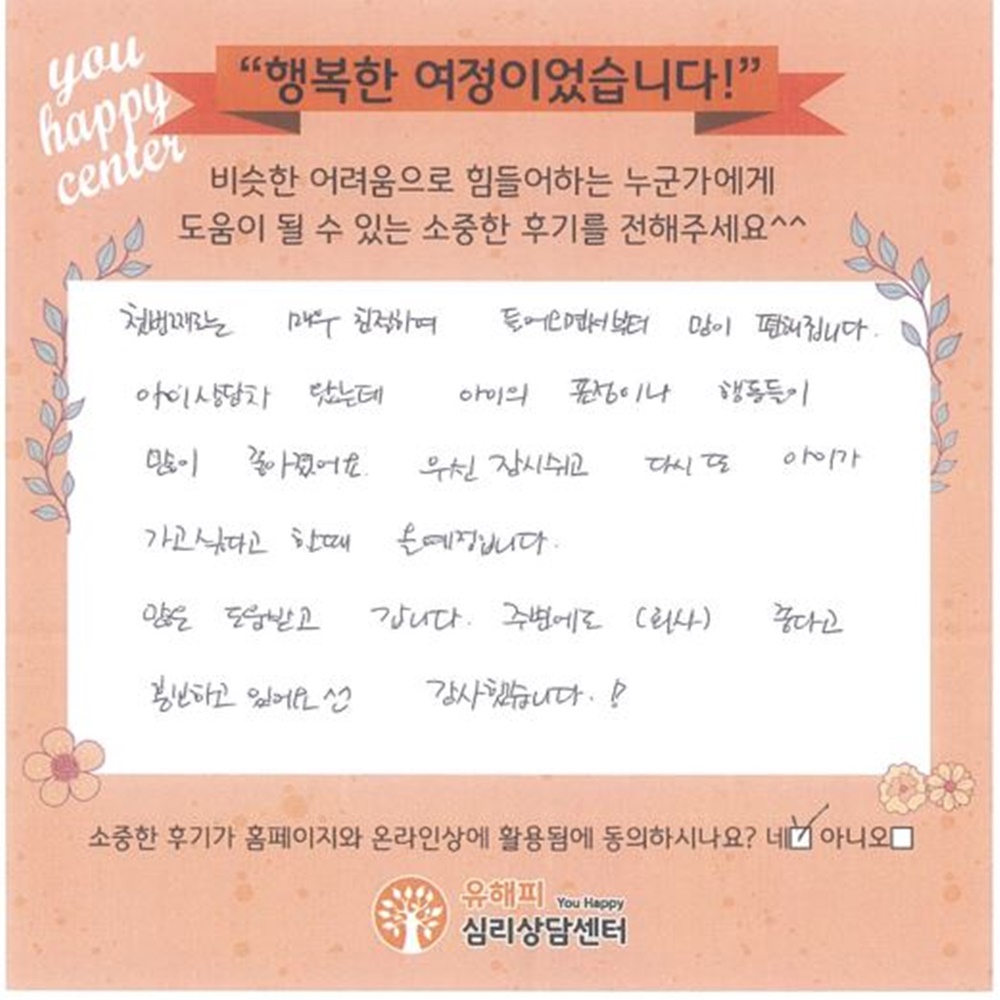 you
happy
center
“행복한 여정이었습니다!”
비슷한 어려움으로 힘들어하는 누군가에게
도움이 될 수 있는 소중한 후기를 전해주세요^^
첫번째로는 매우 친절하며 들어오면서부터 맘이 편해집니다.
아이상담차 왔는데 아이의 표정이나 행동들이
많이 좋아졌어요. 우선 잠시쉬고 다시 또 아이가
가고싶다고 할때 올예정입니다.
많은 도움받고 갑니다. 주변에도 (회사) 좋다고
홍보하고 있어요 감사했습니다.!
소중한 후기가 홈페이지와 온라인상에 활용됨에 동의하시나요? 네 아니오
유해피 You Happy
심리상담센터